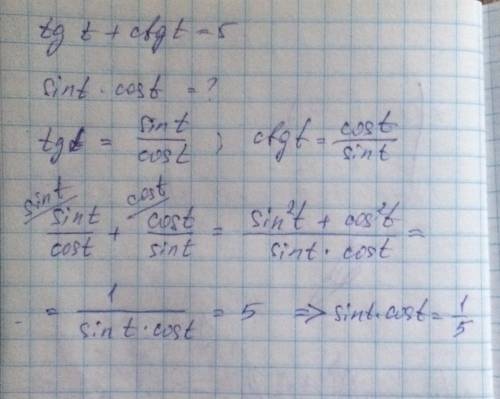 tg t + ctg t = 5
sint · cost = ?
tgt = sint/cost ; ctgt = cost/sint
sint/ sint/cost + cost/ cost/sint = (sin²t + cos²t)/(sint · cost) =
= 1/(sint · cost) = 5 => sint · cost = 1/5